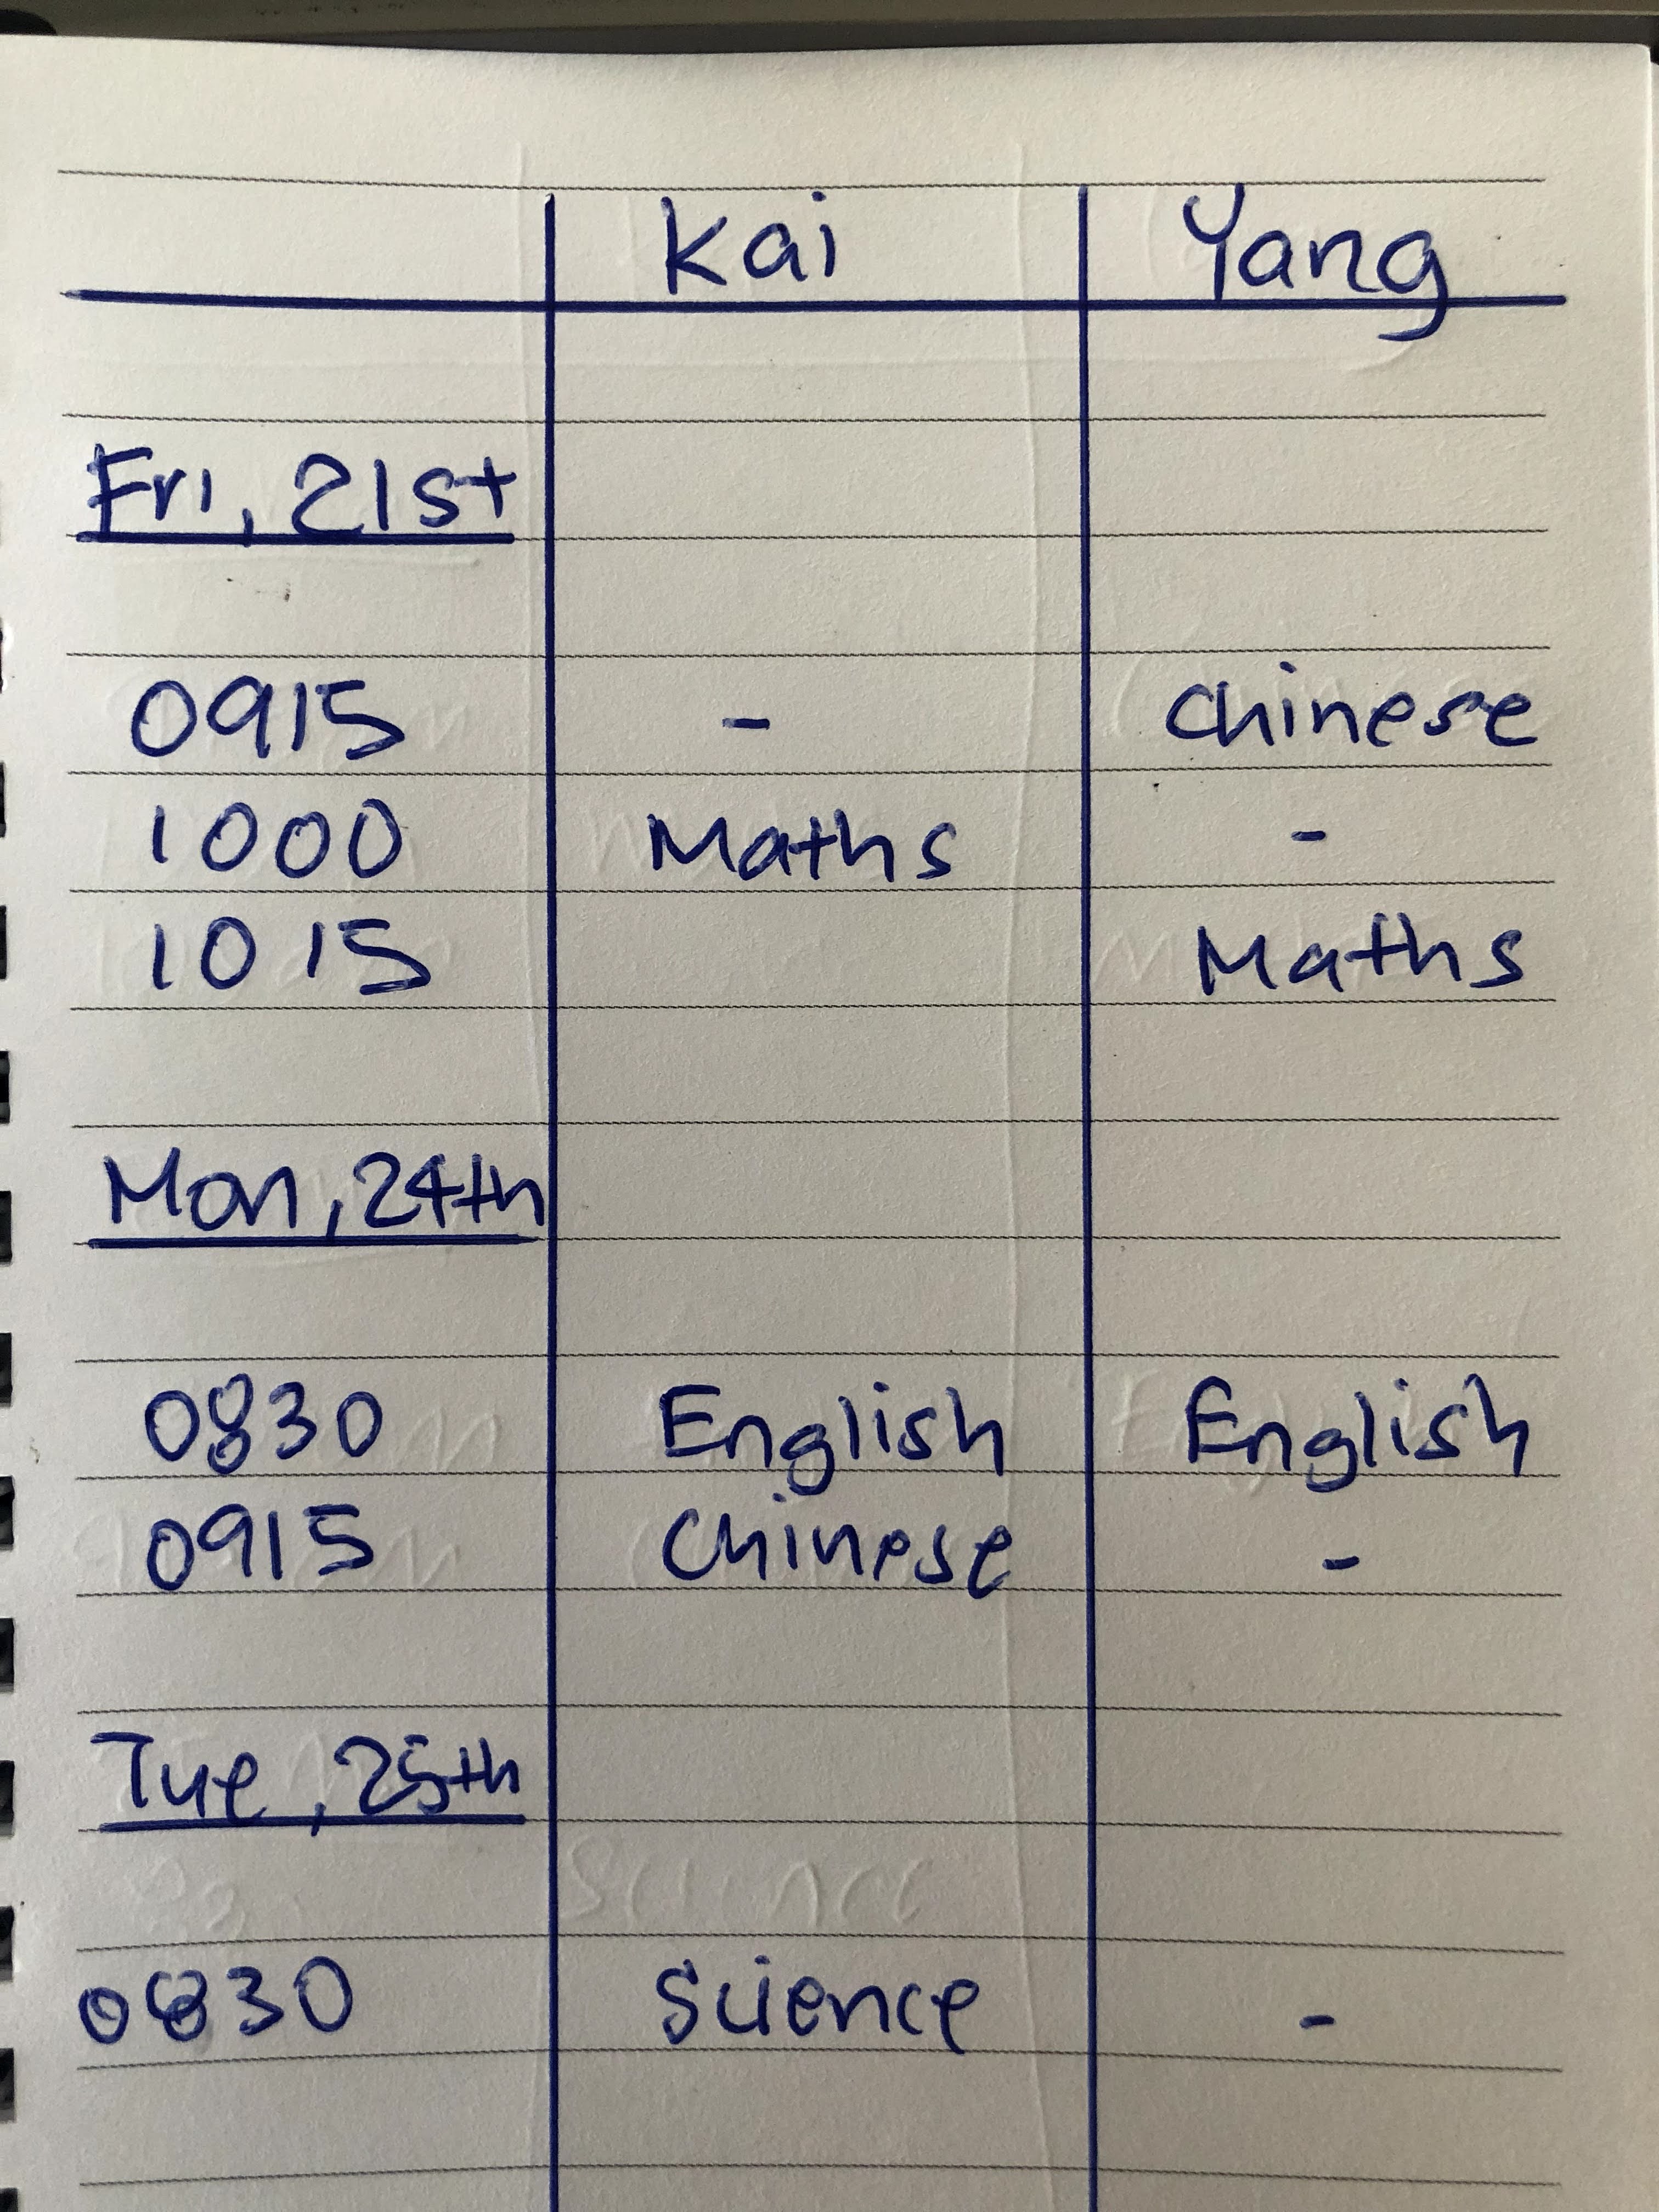 Kai Yang
Fri, 21st
0915 - Chinese
1000 Maths -
1015 Maths
Mon, 24th
0830 English English
0915 Chinese -
Tue, 25th
0830 Science -